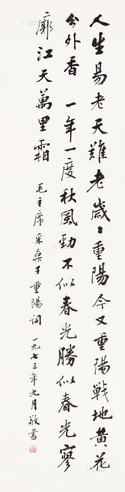 人生易老天難老歲〻重陽今又重陽戰地黃花
分外香 一年一度秋風勁不似春光勝似春光寥
廓江天萬里霜 毛主席采桑子重陽詞 一九七三年九月敬書